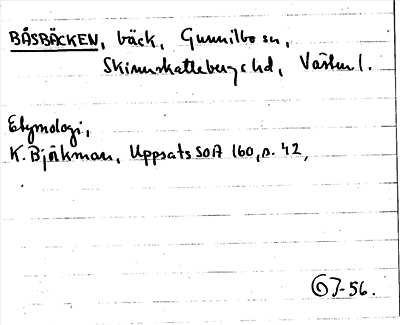 BÅSBÄCKEN, bäck, Gunnilbo sn,
Skinnskattebergs hd, Västm l.
Etymologi,
K. Björkman, Uppsats SOA 160, s. 42,
ÖJ-56.